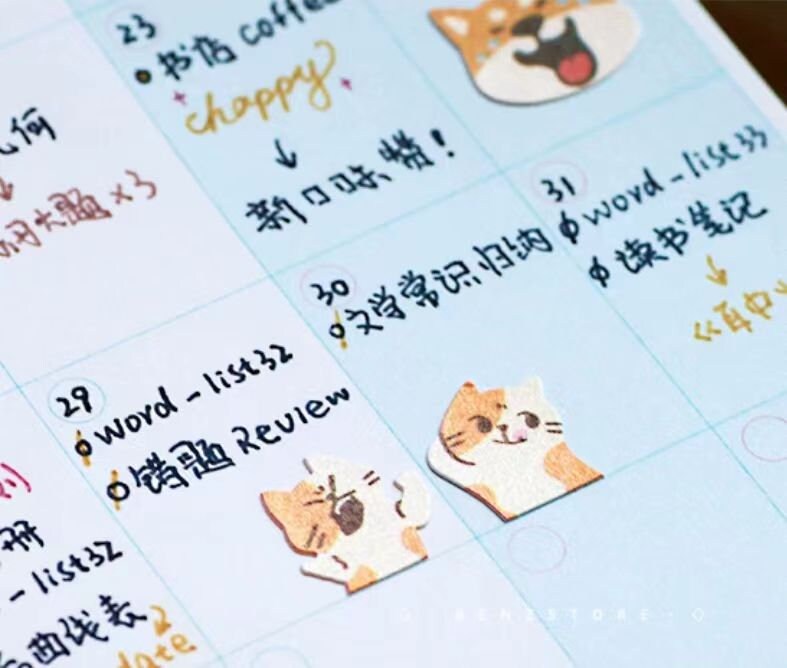 23
书店 coffee
happy
↓
新口味赞!
何
大题×3
31
word-list33
读书笔记
↓
30
文学常识归纳
29
word-list32
错题Review
册
-list32
曲线表
date
BENESTORE